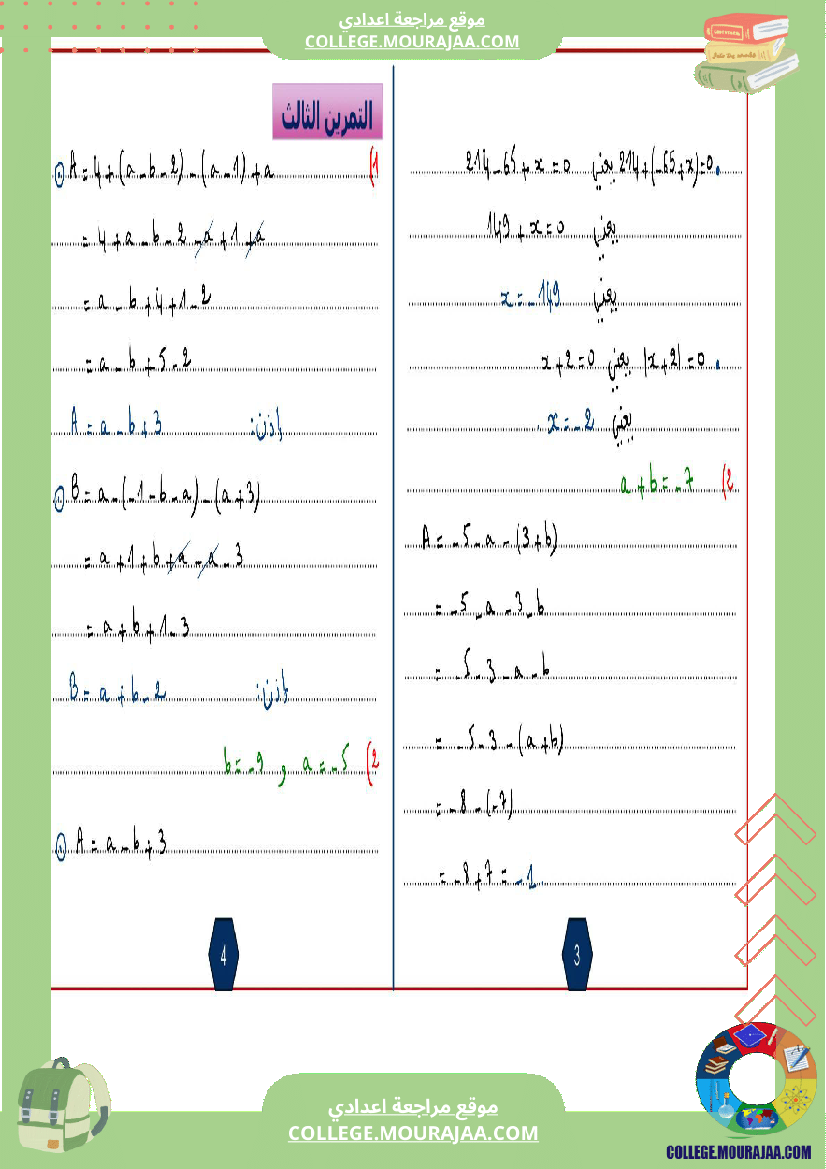 موقع مراجعة اعدادي
COLLEGE.MOURAJAA.COM
. 214+(-65+x)=0 يعني 214-65+x=0
يعني 149+x=0
يعني x=-149
. |x+2|=0 يعني x+2=0
يعني x=-2.
(2 a+b=-7
A=-5-a-(3+b)
=-5-a-3-b
=-5-3-a-b
=-5-3-(a+b)
=-8-(-7)
=-8+7=-1
3
التمرين الثالث
(1 A=4+(a-b-2)-(a-1)+a
=4+a-b-2-a+1+a
=a-b+4+1-2
=a-b+5-2
إذن: A=a-b+3
B=a-(-1-b-a)-(a+3)
=a+1+b+a-a-3
=a+b+1-3
إذن: B=a+b-2
(2 a=-5 و b=-9
A=a-b+3
4
موقع مراجعة اعدادي
COLLEGE.MOURAJAA.COM
COLLEGE.MOURAJAA.COM